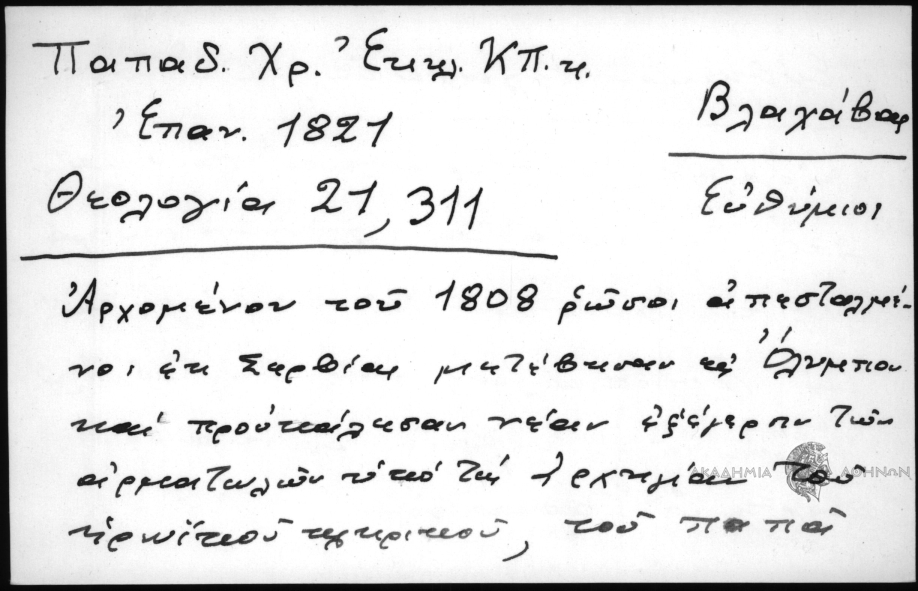 Παπαδ. Χρ. Ἐκκλ. ΚΠ. κ.
Ἐπαν. 1821
Θεολογία 21, 311
Βλαχάβας
Εὐθύμιος
Ἀρχομένου τοῦ 1808 ῥῶσοι ἀπεσταλμέ-
νοι ἐκ Σερβίας μετέβησαν εἰς Ὄλυμπον
καί προὐκάλεσαν νέαν ἐξέγερσιν τῶν
ἁρματωλῶν ὑπό τήν ἀρχηγίαν τοῦ
ἡρωϊκοῦ κληρικοῦ, τοῦ παπᾶ
ΑΚΑΔΗΜΙΑ ΑΘΗΝΩΝ